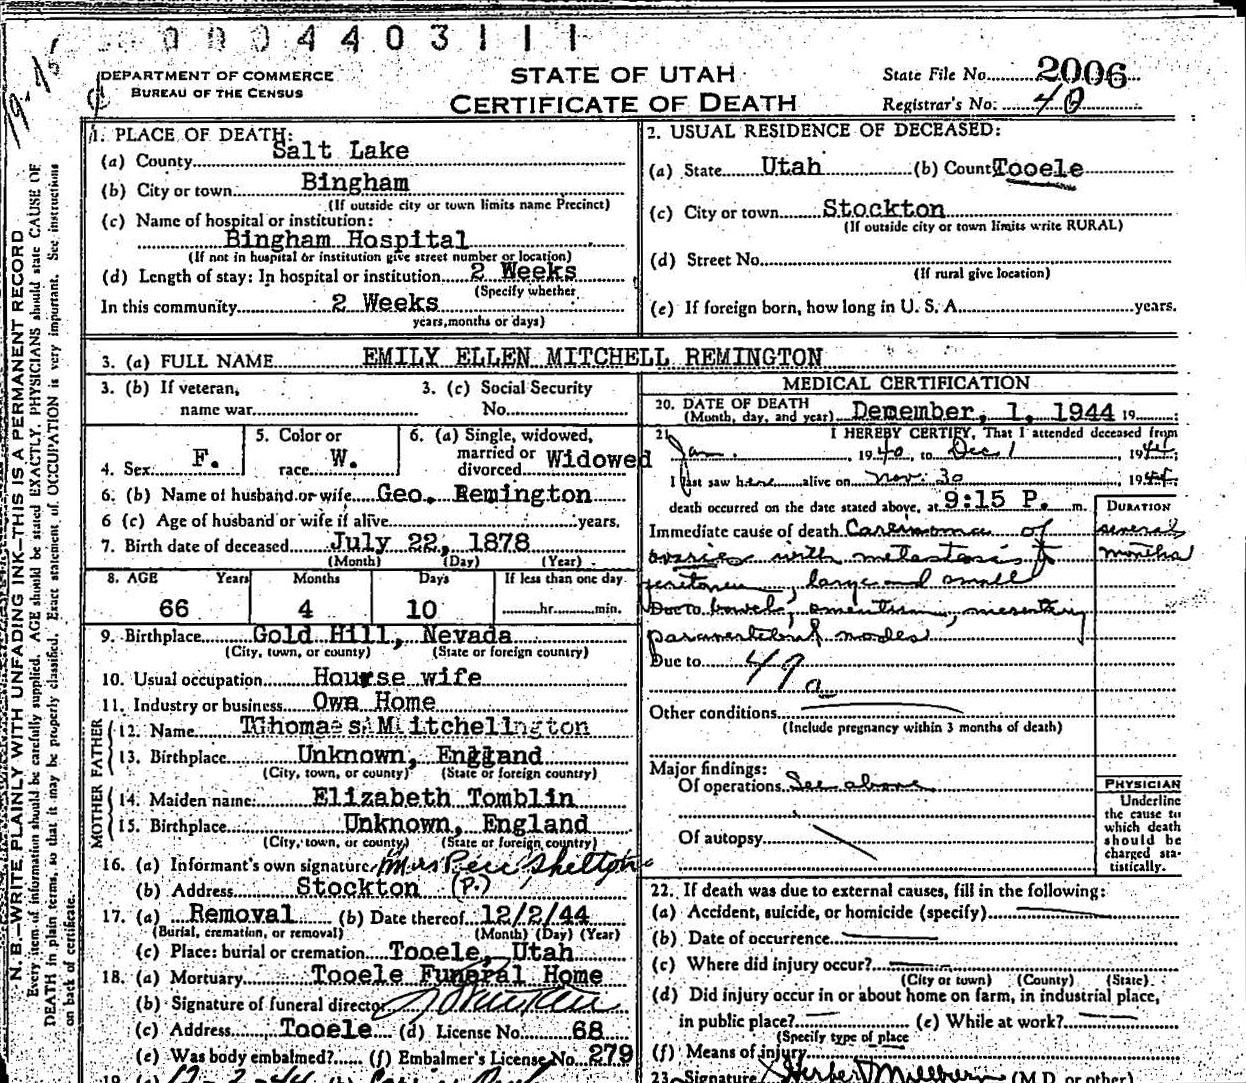 0 0 0 4 4 0 3 1 1 1
DEPARTMENT OF COMMERCE
BUREAU OF THE CENSUS
STATE OF UTAH
CERTIFICATE OF DEATH
State File No. 2006
Registrar's No: 40
N. B.—WRITE PLAINLY WITH UNFADING INK—THIS IS A PERMANENT RECORD
Every item of information should be carefully supplied. AGE should be stated EXACTLY. PHYSICIANS should state CAUSE OF
DEATH in plain terms, so that it may be properly classified. Exact statement of OCCUPATION is very important. See instructions
on back of certificate.
1. PLACE OF DEATH:
(a) County Salt Lake
(b) City or town Bingham
(If outside city or town limits name Precinct)
(c) Name of hospital or institution:
Bingham Hospital
(If not in hospital or institution give street number or location)
(d) Length of stay: In hospital or institution 2 Weeks
(Specify whether
In this community 2 Weeks
years, months or days)
2. USUAL RESIDENCE OF DECEASED:
(a) State Utah (b) Count Tooele
(c) City or town Stockton
(If outside city or town limits write RURAL)
(d) Street No.
(If rural give location)
(e) If foreign born, how long in U. S. A. years.
3. (a) FULL NAME EMILY ELLEN MITCHELL REMINGTON
3. (b) If veteran, 3. (c) Social Security
name war No.
4. Sex F. 5. Color or race W. 6. (a) Single, widowed, married or divorced Widowed
6. (b) Name of husband or wife Geo. Remington
6 (c) Age of husband or wife if alive years.
7. Birth date of deceased July 22, 1878
(Month) (Day) (Year)
8. AGE Years Months Days If less than one day
66 4 10 hr. min.
9. Birthplace Gold Hill, Nevada
(City, town, or county) (State or foreign country)
10. Usual occupation Hourse wife
11. Industry or business Own Home
FATHER
12. Name Thomas Mitchell
13. Birthplace Unknown, England
(City, town, or county) (State or foreign country)
MOTHER
14. Maiden name Elizabeth Tomblin
15. Birthplace Unknown, England
(City, town, or county) (State or foreign country)
16. (a) Informant's own signature Mrs Shelton
(b) Address Stockton (P.)
17. (a) Removal (b) Date thereof 12/2/44
(Burial, cremation, or removal) (Month) (Day) (Year)
(c) Place: burial or cremation Tooele, Utah
18. (a) Mortuary Tooele Funeral Home
(b) Signature of funeral director
(c) Address Tooele (d) License No. 68
(e) Was body embalmed? (f) Embalmer's License No. 279
MEDICAL CERTIFICATION
20. DATE OF DEATH
(Month, day, and year) Demember, 1, 1944 19
21. I HEREBY CERTIFY, That I attended deceased from
Jan. 1940, to Dec 1, 1944;
I last saw her alive on Nov. 30 1944;
death occurred on the date stated above, at 9:15 P. m.
DURATION
Immediate cause of death Carcinoma of several
ovaries with metastasis to months
peritoneum, large and small
Due to bowel, omentum, mesentery
paravertebral nodes
Due to 49a
Other conditions
(Include pregnancy within 3 months of death)
Major findings:
Of operations See above
Of autopsy
PHYSICIAN
Underline
the cause to
which death
should be
charged sta-
tistically.
22. If death was due to external causes, fill in the following:
(a) Accident, suicide, or homicide (specify)
(b) Date of occurrence
(c) Where did injury occur?
(City or town) (County) (State)
(d) Did injury occur in or about home on farm, in industrial place,
in public place? (e) While at work?
(Specify type of place
(f) Means of injury
23. Signature (M.D. or other)